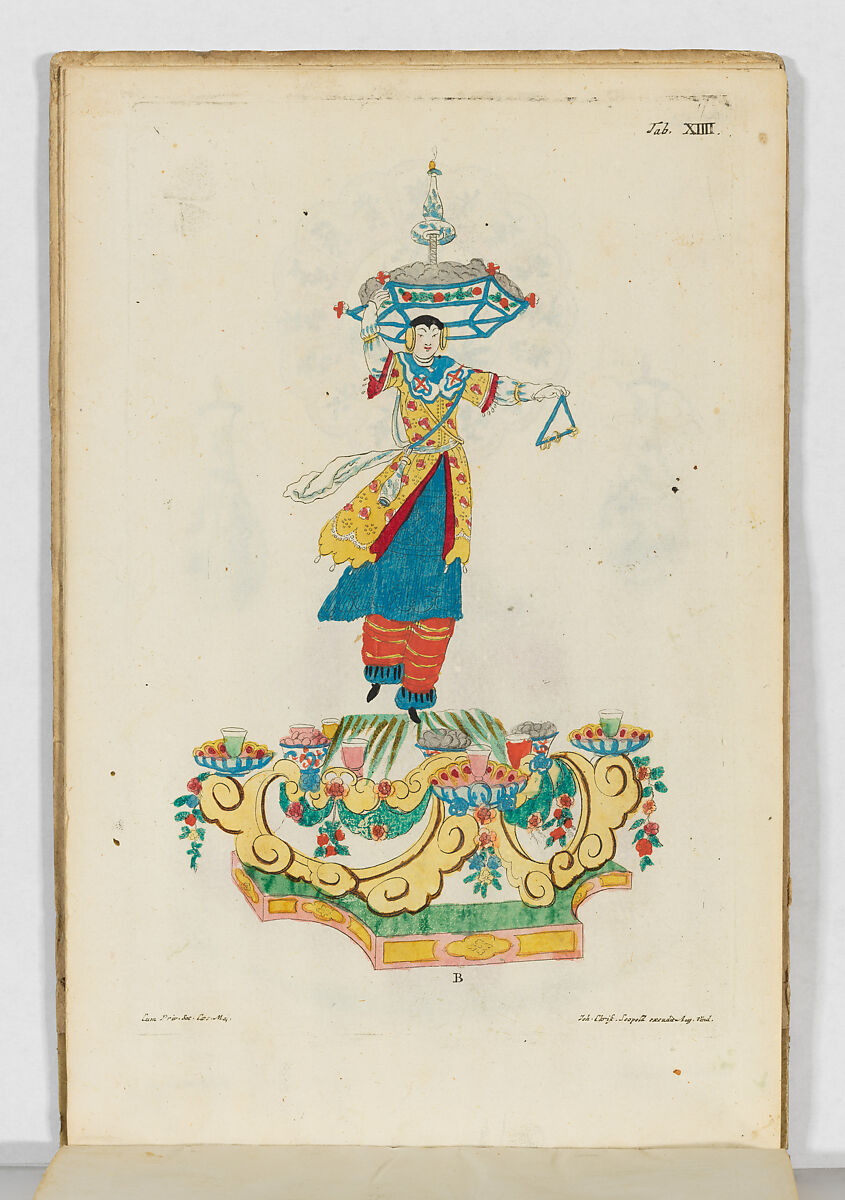 Tab. XIIII.
B
Cum Priv. Sac. Cæs. Maj.
Joh. Christ. Leopold excudit Aug. Vind.